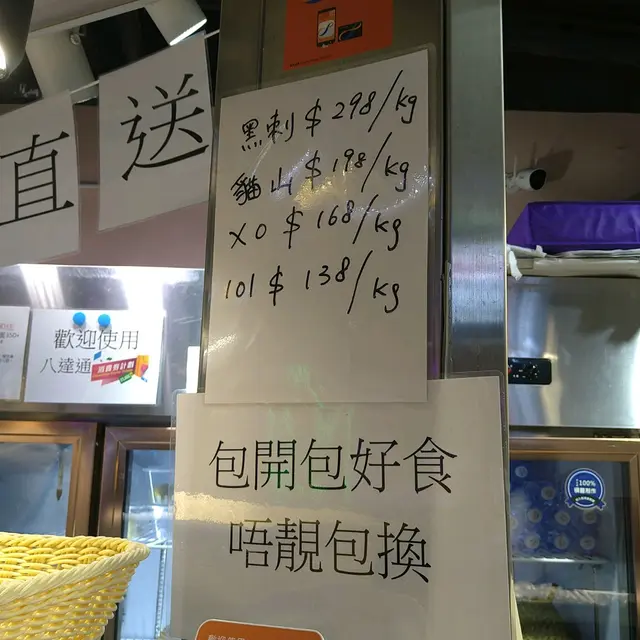 直
送
黑刺 $ 298/kg
貓山 $ 198/kg
XO $ 168/kg
101 $ 138/kg
歡迎使用
八達通
消費券計劃
包開包好食
唔靚包換
100%